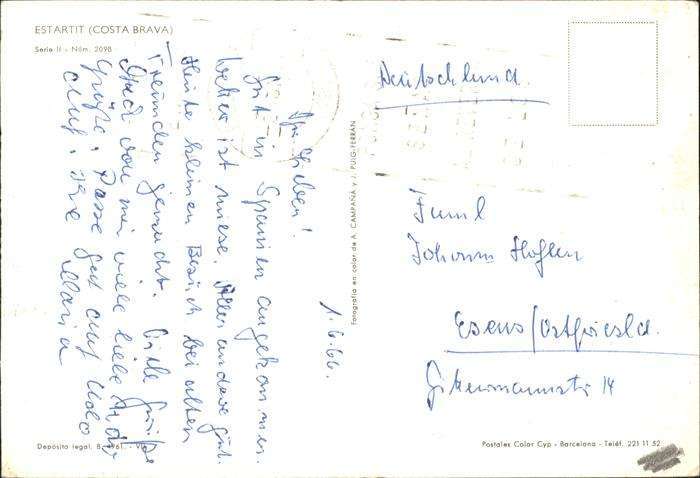 ESTARTIT (COSTA BRAVA)
Serie II - Núm. 2098
1.6.66.
Ihr Lieben!
Gut in Spanien angekommen.
Wetter ist miese. Alles andere gut.
Heute kleinen Besuch bei alten
Freunden gemacht. Viele Grüße
Auch von mir viele liebe
Grüße. Passe gut auf
auf. Ihre Maria
Fotografía en color de A. CAMPAÑA y J. PUIG-FERRÁN
Deutschland.
Faml
Johann
Esens/Ostfriesld.
14
Depósito legal. B.
Postales Color Cyp - Barcelona - Teléf. 221 11 52